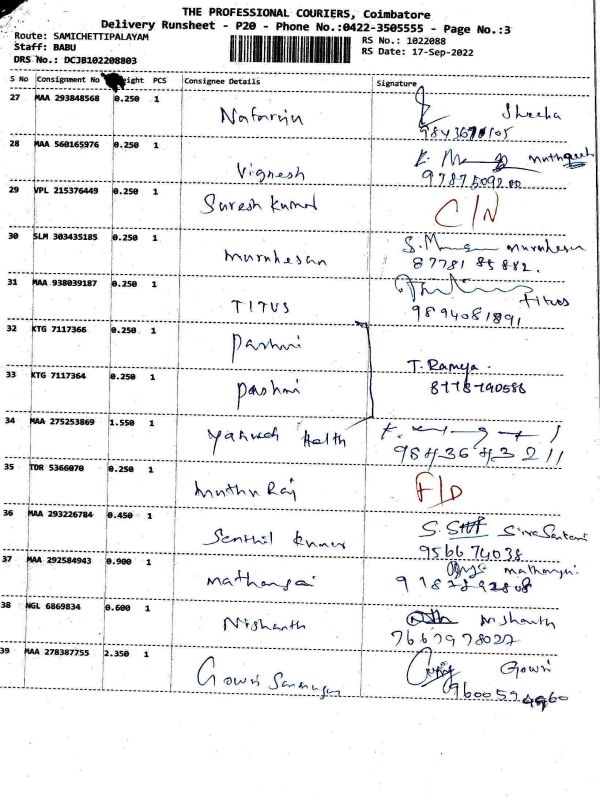 THE PROFESSIONAL COURIERS, Coimbatore
Delivery Runsheet - P20 - Phone No.:0422-3505555 - Page No.:3
Route: SAMICHETTIPALAYAM
RS No.: 1022088
Staff: BABU
RS Date: 17-Sep-2022
DRS No.: DCJB102208803
S No Consignment No PCS Consignee Details Signature
27 MAA 293848568 0.250 1 Nataraju Sheeha
28 MAA 560165976 0.250 1 Vignesh
29 VPL 215376449 0.250 1 Suresh Kumar C/N
30 SLM 303435185 0.250 1 Murukesan S. Murukesan
87781 85882.
31 MAA 938039187 0.250 1 TITUS Titus
9894081891
32 KTG 7117366 0.250 1 Pashmi
T. Ramya.
33 KTG 7117364 0.250 1 Pashmi 8778790588
34 MAA 275253869 1.550 1 Health
9843643211
35 TDR 5366070 0.250 1 Muthu Raj F/D
36 MAA 293226784 0.450 1 Senthil Kumar
956674038
37 MAA 292584943 0.900 1 Mathangai
38 NGL 6869834 0.600 1 Nishanth Nishanth
7667978027
39 MAA 278387755 2.350 1 Gowri Gowri